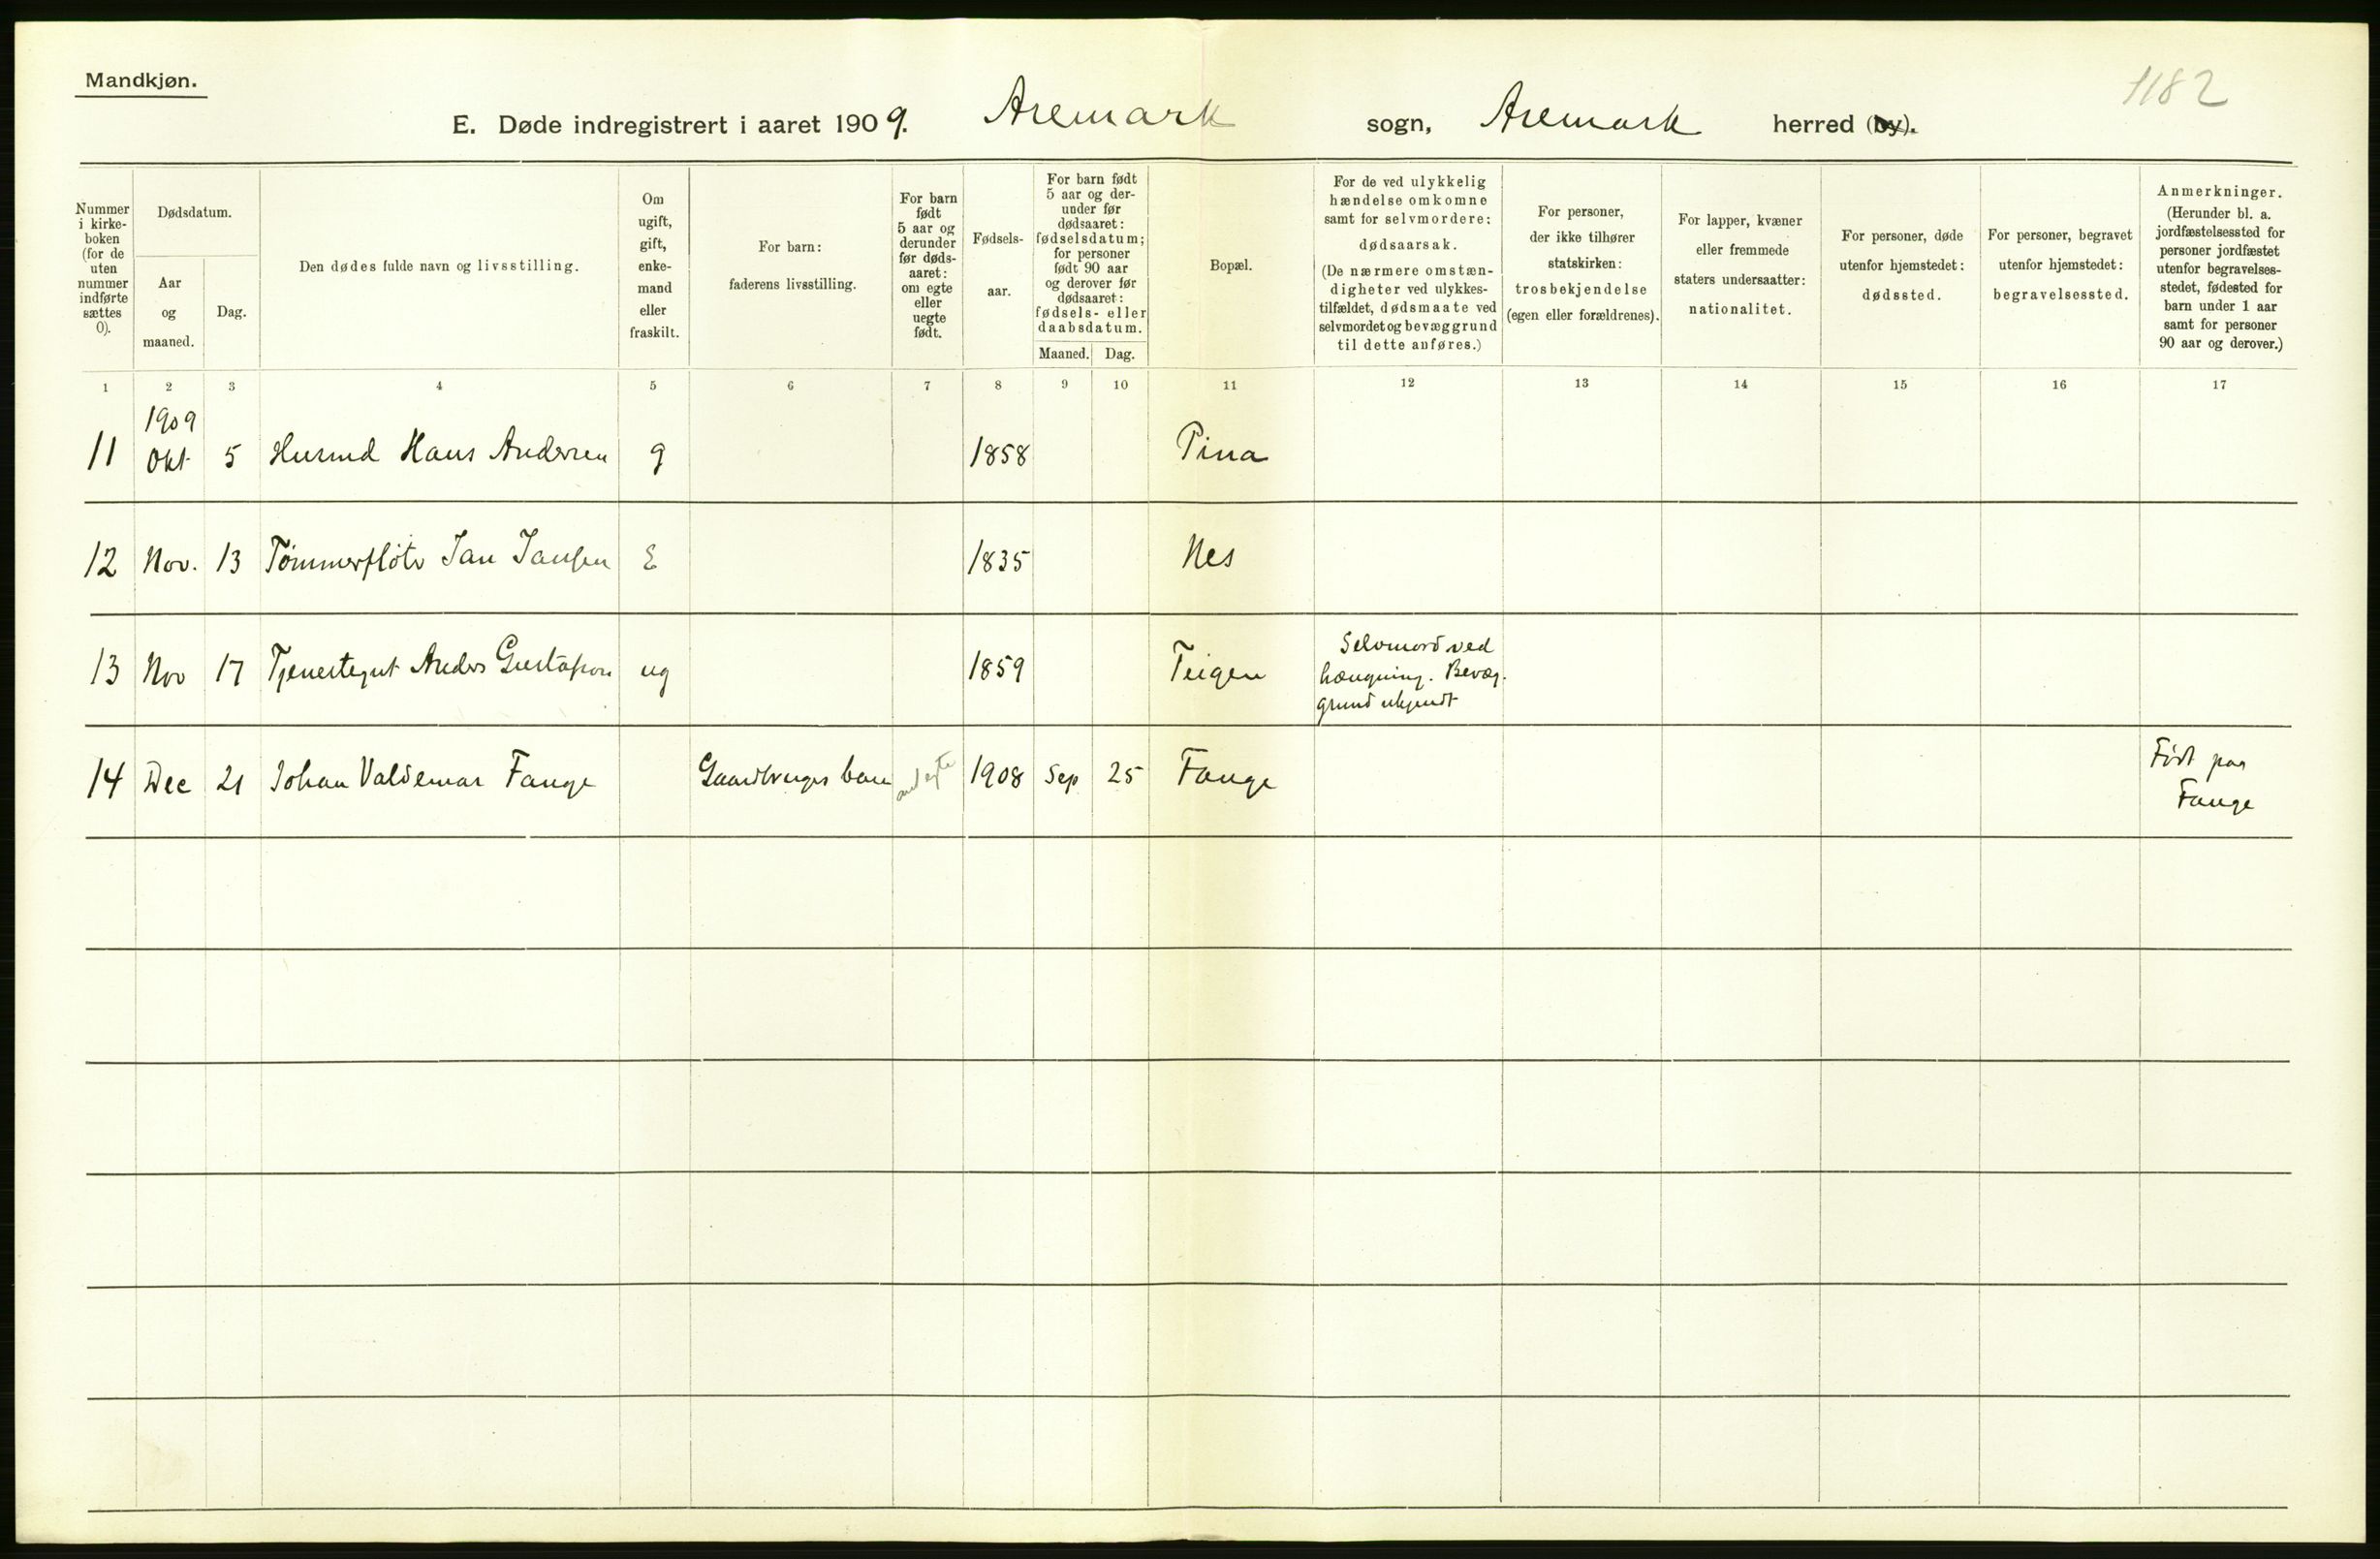 Mandkjøn.
1182
E. Døde indregistrert i aaret 1909. Aremark sogn, Aremark herred (by).
Nummer i kirke-boken (for de uten nummer indførte sættes 0).
Dødsdatum.
Aar og maaned.
Dag.
Den dødes fulde navn og livsstilling.
Om ugift, gift, enke-mand eller fraskilt.
For barn: faderens livsstilling.
For barn født 5 aar og derunder før døds-aaret: om egte eller uegte født.
Fødsels-aar.
For barn født 5 aar og der-under før dødsaaret: fødselsdatum; for personer født 90 aar og derover før dødsaaret: fødsels- eller daabsdatum.
Maaned.
Dag.
Bopæl.
For de ved ulykkelig hændelse omkomne samt for selvmordere: dødsaarsak. (De nærmere omstæn-digheter ved ulykkes-tilfældet, dødsmaate ved selvmordet og bevæggrund til dette anføres.)
For personer, der ikke tilhører statskirken: trosbekjendelse (egen eller forældrenes).
For lapper, kvæner eller fremmede staters undersaatter: nationalitet.
For personer, døde utenfor hjemstedet: dødssted.
For personer, begravet utenfor hjemstedet: begravelsessted.
Anmerkninger. (Herunder bl. a. jordfæstelsessted for personer jordfæstet utenfor begravelses-stedet, fødested for barn under 1 aar samt for personer 90 aar og derover.)
1 2 3 4 5 6 7 8 9 10 11 12 13 14 15 16 17
1909
11 Okt 5 Husmd Hans Andersen g 1858 Pina
12 Nov. 13 Tømmerfløter Jan Jansen E 1835 Nes
13 Nov 17 Tjenestegut Anders Gustafson ug 1859 Teigen Selvmord ved
hængning. Bevæg-
grund ukjendt
14 Dec 21 Johan Valdemar Fange Gaardbruger barn egte 1908 Sep 25 Fange Født paa
Fange